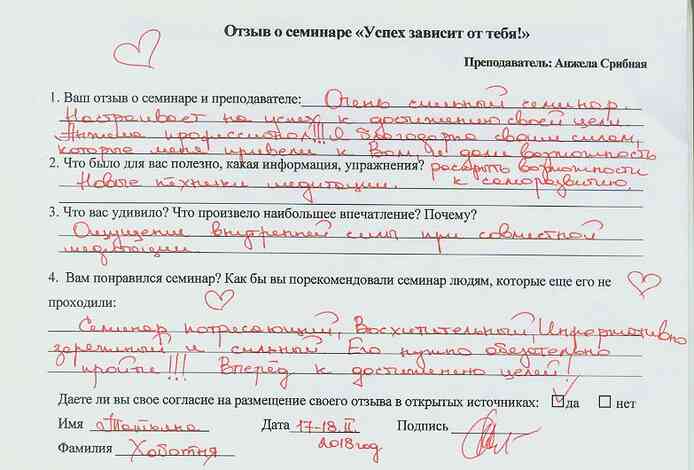 Отзыв о семинаре «Успех зависит от тебя!»
Преподаватель: Анжела Срибная
1. Ваш отзыв о семинаре и преподавателе: Очень сильный семинар.
Настраивает на успех к достижению своей цели.
Анжела профессионал!!! Я благодарна своим силам,
которые меня привели к Вам, и дали возможность
2. Что было для вас полезно, какая информация, упражнения? раскрыть возможности
Новые техники медитации. к саморазвитию.
3. Что вас удивило? Что произвело наибольшее впечатление? Почему?
Ощущение внутренней силы при совместной
медитации
4. Вам понравился семинар? Как бы вы порекомендовали семинар людям, которые еще его не
проходили:
Семинар потресающий, Восхитительный, Информативно
и сильный. Его нужно обязательно
пройти!!! Вперёд к достижению целей!
Даете ли вы свое согласие на размещение своего отзыва в открытых источниках: да нет
Имя Татьяна Дата 17-18.II Подпись
2018 год
Фамилия Хоботня